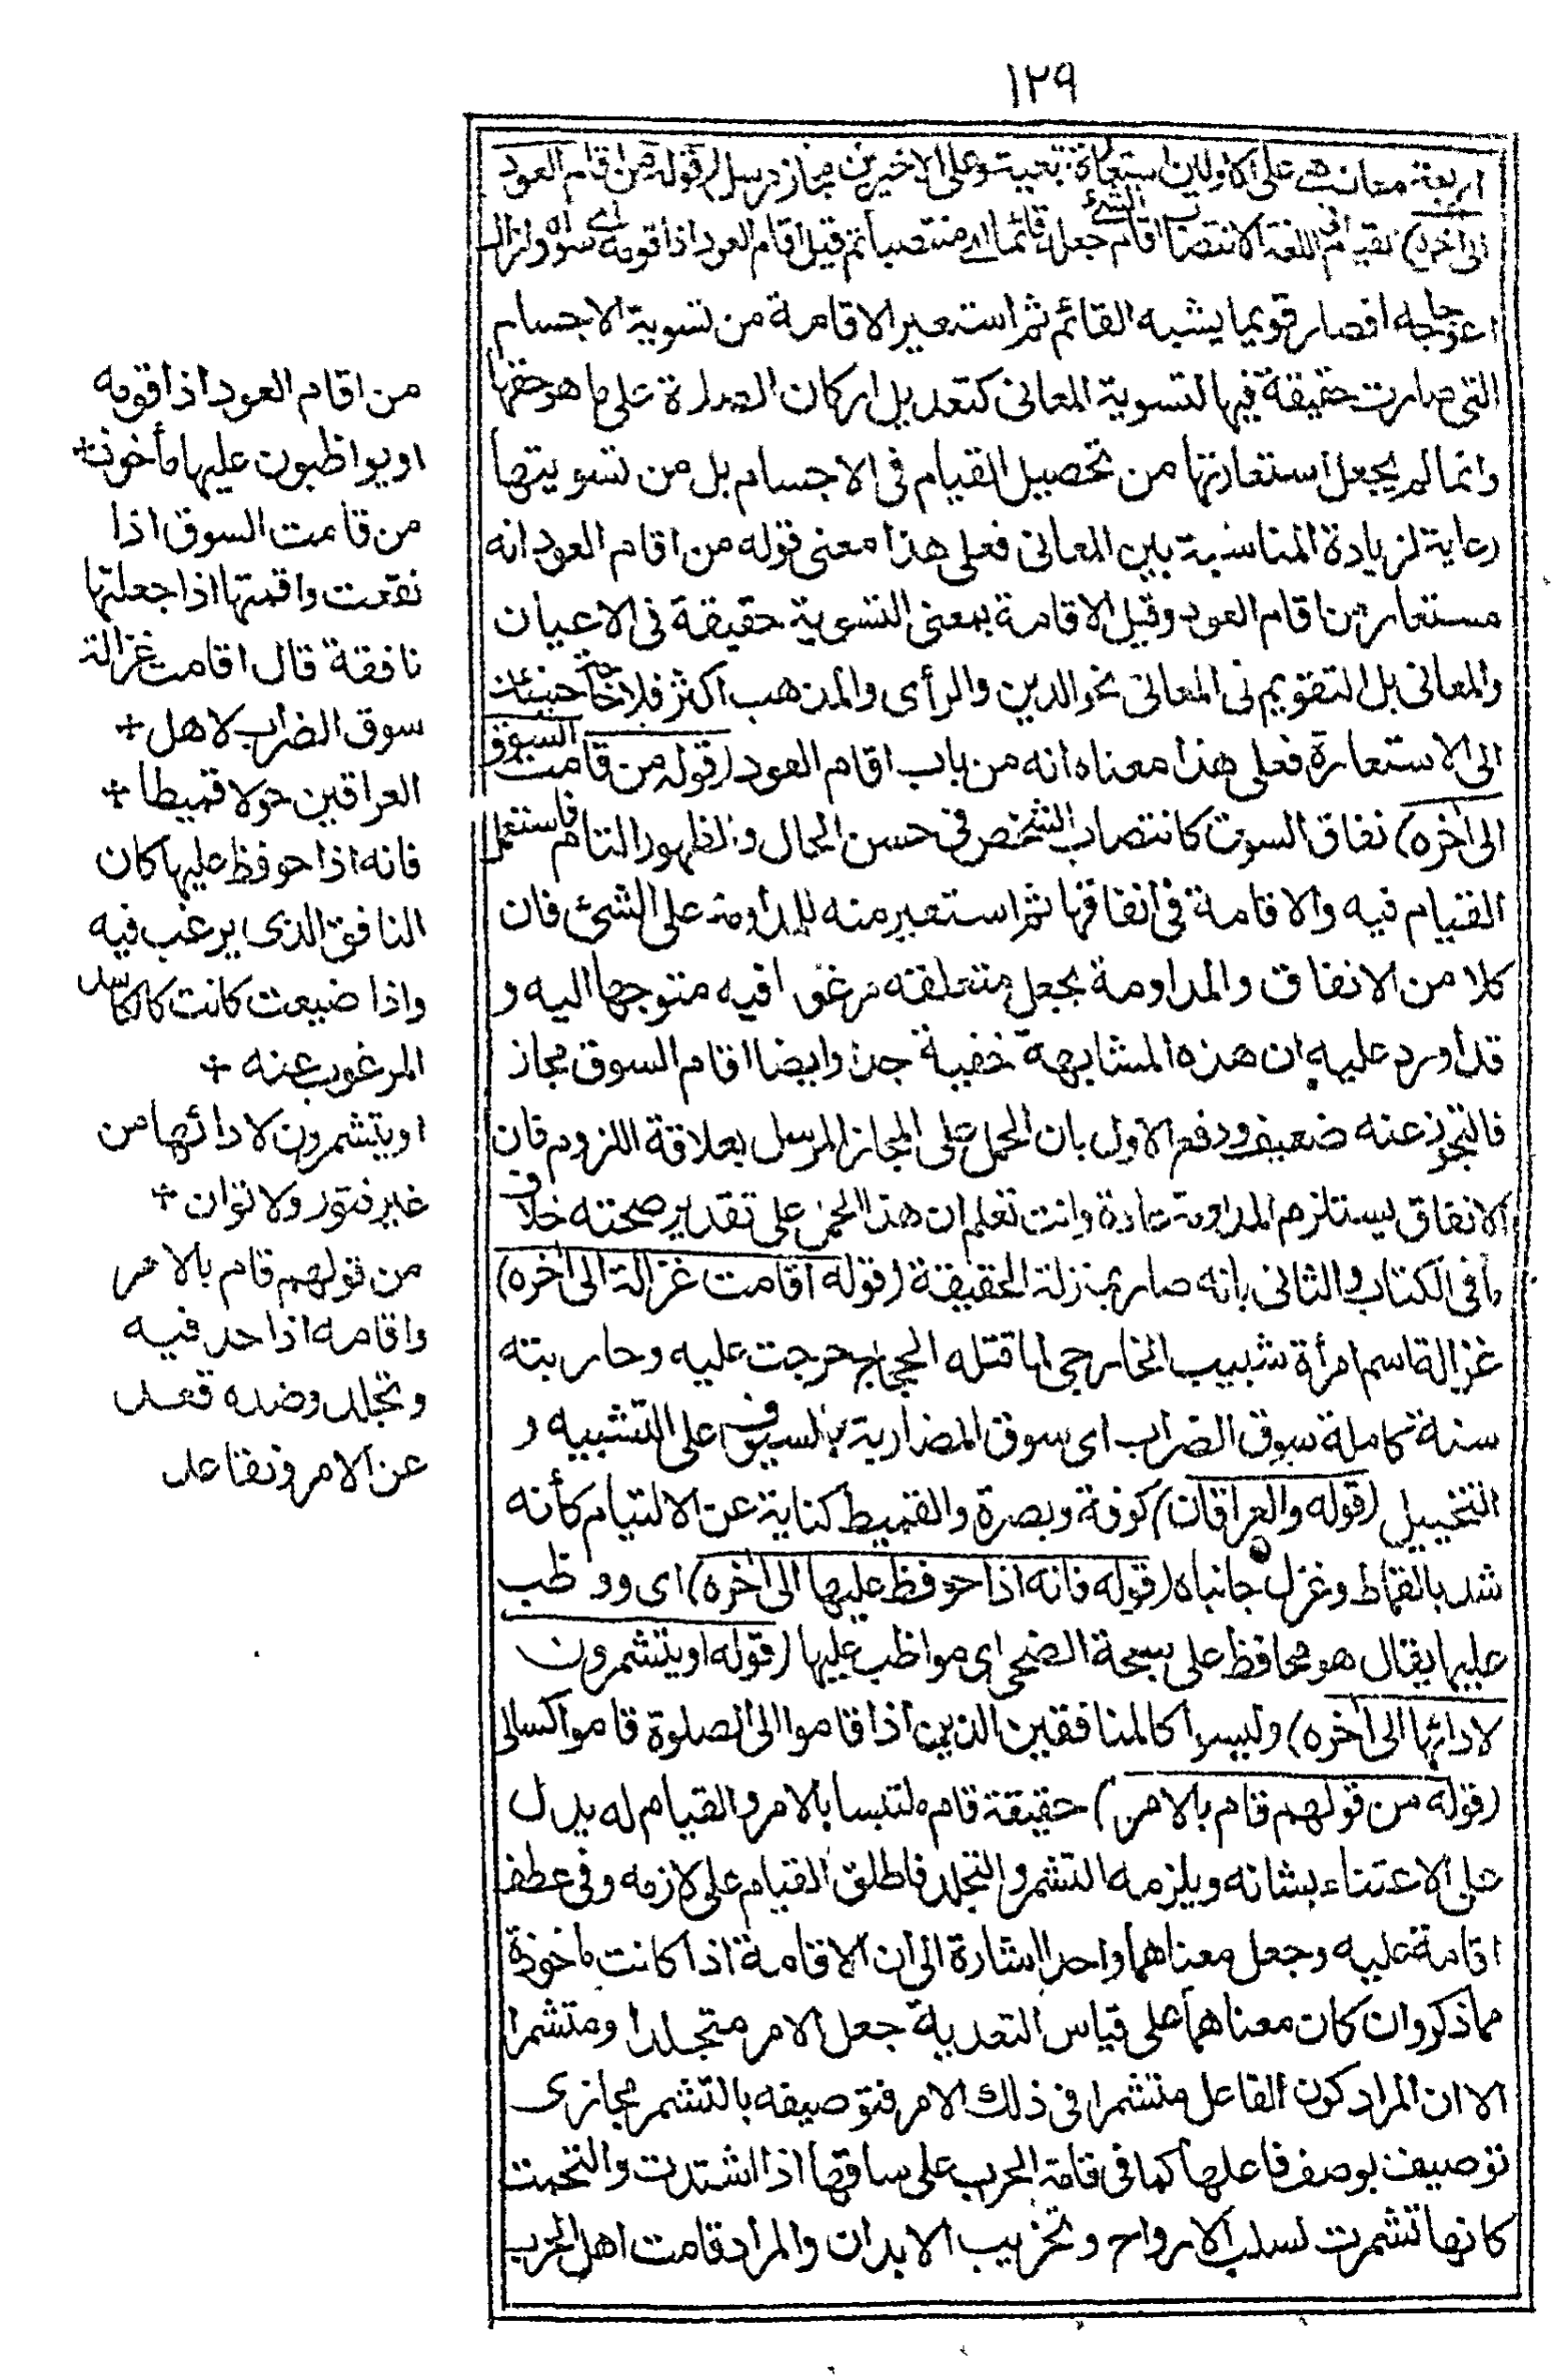 ١٢٩
اربعة معان هى على الاولين استعارة تبعية وعلى الاخيرين مجاز مرسل (قوله من اقام العود
الى آخره) القيام فى اللغة الانتصاب اقام الشئ جعله قائما اى منتصبا ثم قيل اقام العود اذا قومه اى سواه وازال
اعوجاجه فصار قويما يشبه القائم ثم استعير الاقامة من تسوية الاجسام
التى صارت حقيقة فيها لتسوية المعانى كتعديل اركان الصلوة على ما هو حقها
وانما لم يجعل استعارتها من تحصيل القيام فى الاجسام بل من تسويتها
رعاية لزيادة المناسبة بين المعانى فعلى هذا معنى قوله من اقام العود انه
مستعار من اقام العود وقيل الاقامة بمعنى التسوية حقيقة فى الاعيان
والمعانى بل التقويم فى المعانى نحو الدين والرأى والمذهب اكثر فلا حاجة حينئذ
الى الاستعارة فعلى هذا معناه انه من باب اقام العود (قوله من قامت السوق
الى آخره) نفاق السوق كانتصاب الشخص فى حسن الحال والظهور التام فاستعمل
القيام فيه والاقامة فى انفاقها ثم استعير منه للمداومة على الشئ فان
كلا من الانفاق والمداومة يجعل متعلقه مرغوبا فيه متوجها اليه و
قد اورد عليه ان هذه المشابهة خفية جدا وايضا اقام السوق مجاز
فالتجوز عنه ضعيف ودفع الاول بان الحمل على المجاز المرسل بعلاقة اللزوم فان
الانفاق يستلزم المداومة عادة وانت تعلم ان هذا الحمل على تقدير صحته خلاف
ما فى الكتاب والثانى بانه صار بمنزلة الحقيقة (قوله اقامت غزالة الى آخره)
غزالة اسم امرأة شبيب الخارجى لما قتله الحجاج خرجت عليه وحاربته
سنة كاملة سوق الضراب اى سوق المضاربة بالسيوف على التشبيه و
التخييل (قوله والعراقان) كوفة وبصرة والقميط كناية عن الالتيام كأنه
شد بالقماط وغزل جانباه (قوله فانه اذا حوفظ عليها الى آخره) اى ووظب
عليها يقال هو محافظ على سبحة الضحى اى مواظب عليها (قوله او يتشمرون
لادائها الى آخره) وليسوا كالمنافقين الذين اذا قاموا الى الصلوة قاموا كسالى
(قوله من قولهم قام بالامر) حقيقة قام ملتبسا بالامر والقيام له يدل
على الاعتناء بشانه ويلزمه التشمر والتجلد فاطلق القيام على لازمه وفى عطف
اقامة عليه وجعل معناهما واحدا اشارة الى ان الاقامة اذا كانت ماخوذة
مما ذكر وان كان معناهما على قياس التعدية جعل الامر متجلدا ومتشمرا
الا ان المراد كون الفاعل متشمرا فى ذلك الامر فتوصيفه بالتشمر مجازى
توصيف بوصف فاعلها كما فى قامة الحرب على ساقها اذا اشتدت والتحمت
كانها تشمرت لسلب الارواح وتخريب الابدان والمراد قامت اهل الحرب
من اقام العود اذا قومه
او يواظبون عليها مأخوذ +
من قامت السوق اذا
نفقت واقمتها اذا جعلتها
نافقة قال اقامت غزالة
سوق الضراب لاهل +
العراقين حولا قميطا +
فانه اذا حوفظ عليها كان
النافق الذى يرغب فيه
واذا ضيعت كانت كالكاسد
المرغوب عنه +
او يتشمرون لادائها من
غير فتور ولا توان +
من قولهم قام بالامر
واقامه اذا جد فيه
وتجلد وضده قعد
عن الامر وتقاعد